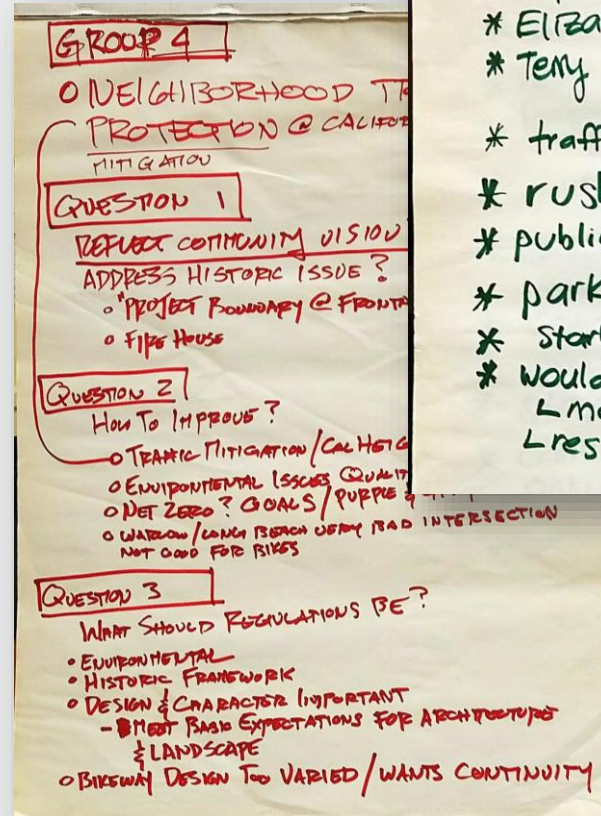 GROUP 4
O NEIGHBORHOOD
PROTECTION @
MITIGATION
QUESTION 1
REFLECT COMMUNITY VISION
ADDRESS HISTORIC ISSUE?
o "PROJECT BOUNDARY @
o FIRE HOUSE
QUESTION 2
HOW TO IMPROVE?
o TRAFFIC MITIGATION /
o ENVIRONMENTAL ISSUES
o NET ZERO? GOALS / PURPLE &
o WARDLOW / LONG BEACH VERY BAD INTERSECTION
NOT GOOD FOR BIKES
QUESTION 3
WHAT SHOULD REGULATIONS BE?
• ENVIRONMENTAL
• HISTORIC FRAMEWORK
o DESIGN & CHARACTER IMPORTANT
- MEET BASIC EXPECTATIONS FOR ARCHITECTURE
& LANDSCAPE
o BIKEWAY DESIGN TOO VARIED / WANTS CONTINUITY
* Terry
*
*
* public
* park
* Start
* would